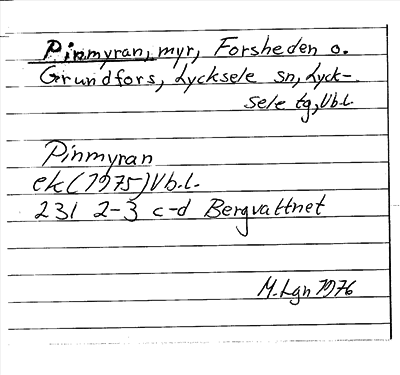 Pinmyran, myr, Forsheden o.
Grundfors, Lycksele sn, Lyck-
sele tg, Vb.l.
Pinmyran
ek (1975) Vb.l.
231 2-3 c-d Bergvattnet
M. Lgn 1976